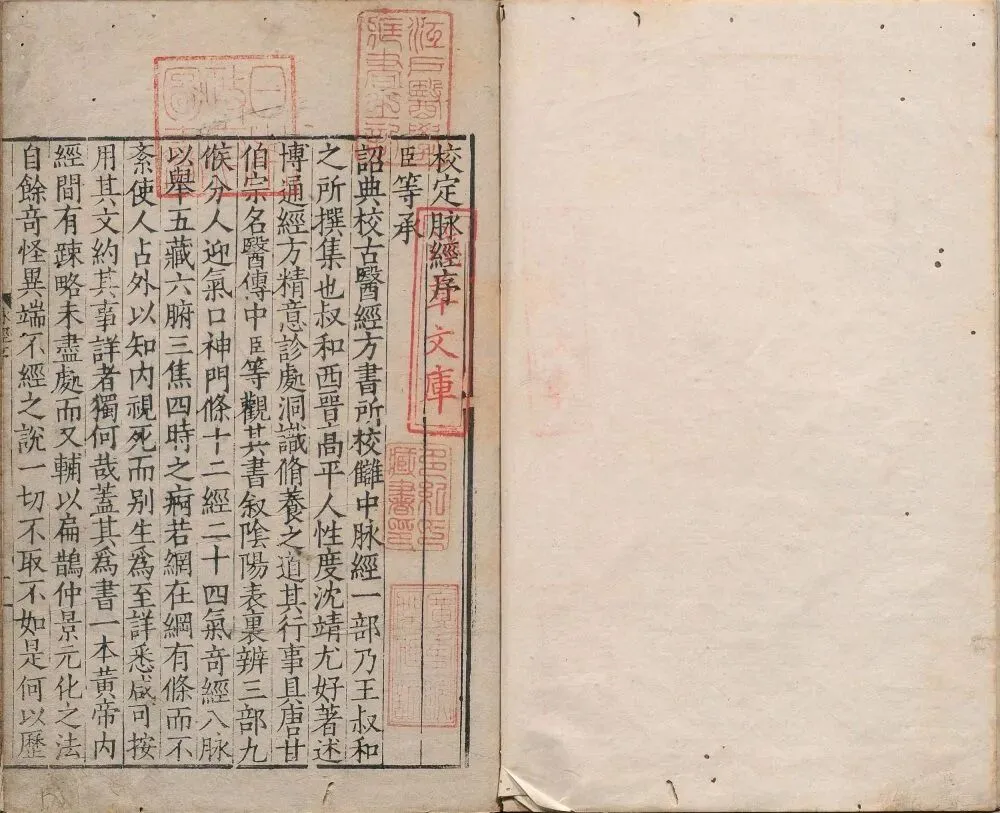 校定脉經序
臣等承
詔典校古醫經方書所校讎中脉經一部乃王叔和
之所撰集也叔和西晉高平人性度沈靖尤好著述
博通經方精意診處洞識脩養之道其行事具唐甘
伯宗名醫傳中臣等觀其書叙陰陽表裏辨三部九
候分人迎氣口神門條十二經二十四氣奇經八脉
以舉五藏六腑三焦四時之痾若網在綱有條而不
紊使人占外以知内視死而别生爲至詳悉咸可按
用其文約其事詳者獨何哉蓋其爲書一本黄帝内
經間有踈略未盡處而又輔以扁鵲仲景元化之法
自餘奇怪異端不經之説一切不取不如是何以歷
江戸醫學
藏書之印
文庫
多紀氏
藏書印